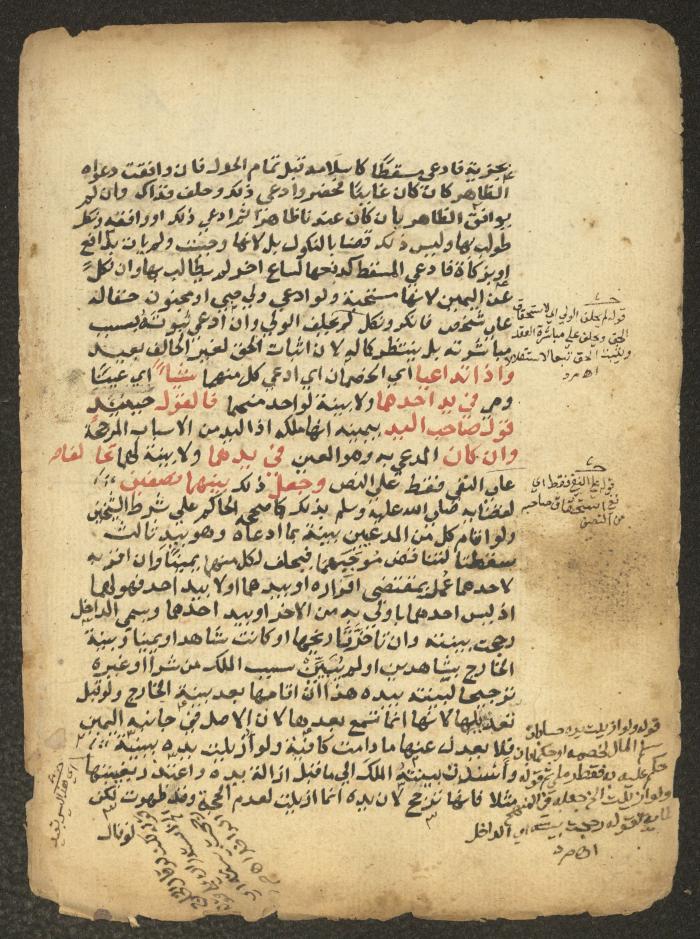 بجزية فادعى مسقطا كاسلامه قبل تمام الحول فان وافقت دعواه
الظاهر كان كان غايبا فحضر وادعى ذلك وحلف فذاك وان لم
يوافق الظاهر بان كان عندنا ظاهرا ثم ادعى ذلك او وافقه ونكل
طولب بها وليس ذلك قضا بالنكول بل لانها وجبت ولم يات بدافع
او بزكاة فادعى المسقط كدفعها لساع اخر لم يطالب بها وان نكل
عن اليمين لانها مستحبة ولو ادعى ولي صبي او مجنون حقا له
على شخص فانكر ونكل لم يحلف الولي وان ادعى ثبوته بسبب
مباشرته بل ينتظر كماله لان اثبات الحق لغير الحالف بعيد
واذا تداعيا اي الخصمان اي ادعى كل منهما شيا اي عينا
وهي في يد احدهما ولا بينة لواحد منهما فالقول حينئذ
قول صاحب اليد بيمينه انها ملكه اذ اليد من الاسباب المرجحة
وان كان المدعى به وهو العين في يدهما ولا بينة لهما تحالفا
على النفي فقط على النص وجعل ذلك بينهما نصفين
لقضايه صلى الله عليه وسلم بذلك كما صححه الحاكم على شرط الشيخين
ولو اقام كل من المدعيين بينة بما ادعاه وهو بيد ثالث
سقطتا لتناقض موجبيهما فيحلف لكل منهما يمينا وان اقر به
لاحدهما عمل بمقتضى اقراره او بيدهما او لا بيد احد فهو لهما
اذ ليس احدهما باولى به من الاخر او بيد احدهما ويسمى الداخل
رجحت بينته وان تاخر تاريخها او كانت شاهدا ويمينا وبينة
الخارج شاهدين او لم تبين سبب الملك من شرا او غيره
ترجيحا لبينته بيده هذا ان اقامها بعد بينة الخارج ولو قبل
تعديلها لانها انما تسمع بعدها لان الاصل في جانبه اليمين
فلا يعدل عنها ما دامت كافية ولو ازيلت يده ببينة
واسندت بينته الملك الى ما قبل ازالة يده واعتذر بغيبتها
مثلا فانها ترجح لان يده انما ازيلت لعدم الحجة وقد ظهرت لكن
لو قال
قوله لم يحلف الولي اي لاستحقاق
الحق ويحلف على مباشرة العقد
ويثبت الحق تبعا
اهـ م ر
قوله على النفي فقط اي
نفي استحقاق صاحبه
من النصف
قوله ولو ازيلت يده
المال لخصمه
حكم عليه به فقط
ولو ازيلت الخ جعله في المنهج
لقوله رجحت بينته اي الداخل
اهـ م ر